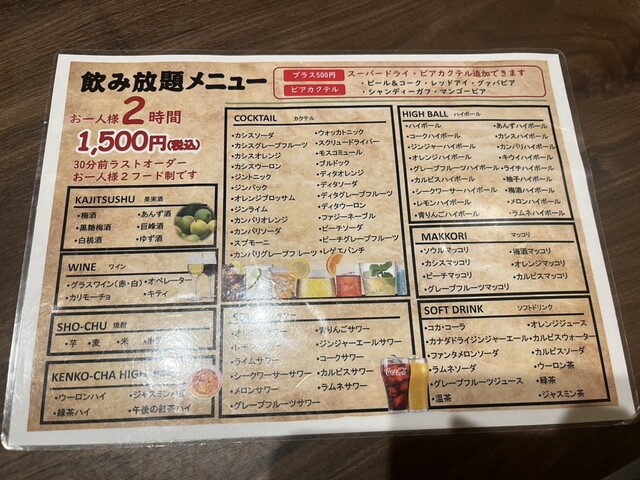 飲み放題メニュー
プラス500円
ビアカクテル
スーパードライ・ビアカクテル追加できます
・ビール&コーク・レッドアイ・グァバビア
・シャンディーガフ・マンゴービア
お一人様2時間
1,500円(税込)
30分前ラストオーダー
お一人様2フード制です
KAJITSUSHU 果実酒
・梅酒 ・あんず酒
・黒糖梅酒 ・巨峰酒
・白桃酒 ・ゆず酒
WINE ワイン
・グラスワイン(赤・白)・オペレーター
・カリモーチョ ・キティ
SHO-CHU 焼酎
・芋 ・麦 ・米
KENKO-CHA HIGH
・ウーロンハイ ・ジャスミンハイ
・緑茶ハイ ・午後の紅茶ハイ
COCKTAIL カクテル
・カシスソーダ
・カシスグレープフルーツ
・カシスオレンジ
・カシスウーロン
・ジントニック
・ジンバック
・オレンジブロッサム
・ジンライム
・カンパリオレンジ
・カンパリソーダ
・スプモーニ
・カンパリグレープフルーツ
・ウォッカトニック
・スクリュードライバー
・モスコミュール
・ブルドック
・ディタオレンジ
・ディタソーダ
・ディタグレープフルーツ
・ディタウーロン
・ファジーネーブル
・ピーチソーダ
・ピーチグレープフルーツ
・レゲエパンチ
・ライムサワー
・シークヮーサーサワー
・メロンサワー
・グレープフルーツサワー
・青りんごサワー
・ジンジャーエールサワー
・コークサワー
・カルピスサワー
・ラムネサワー
Coca-Cola
HIGH BALL ハイボール
・ハイボール
・コークハイボール
・ジンジャーハイボール
・オレンジハイボール
・グレープフルーツハイボール
・カルピスハイボール
・シークワーサーハイボール
・レモンハイボール
・青りんごハイボール
・あんずハイボール
・カシスハイボール
・カンパリハイボール
・キウイハイボール
・ライチハイボール
・柚子ハイボール
・梅酒ハイボール
・メロンハイボール
・ラムネハイボール
MAKKORI マッコリ
・ソウルマッコリ
・カシスマッコリ
・ピーチマッコリ
・グレープフルーツマッコリ
・梅酒マッコリ
・オレンジマッコリ
・カルピスマッコリ
SOFT DRINK ソフトドリンク
・コカ・コーラ
・カナダドライジンジャーエール
・ファンタメロンソーダ
・ラムネソーダ
・グレープフルーツジュース
・温茶
・オレンジジュース
・カルピスウォーター
・カルピスソーダ
・ウーロン茶
・緑茶
・ジャスミン茶